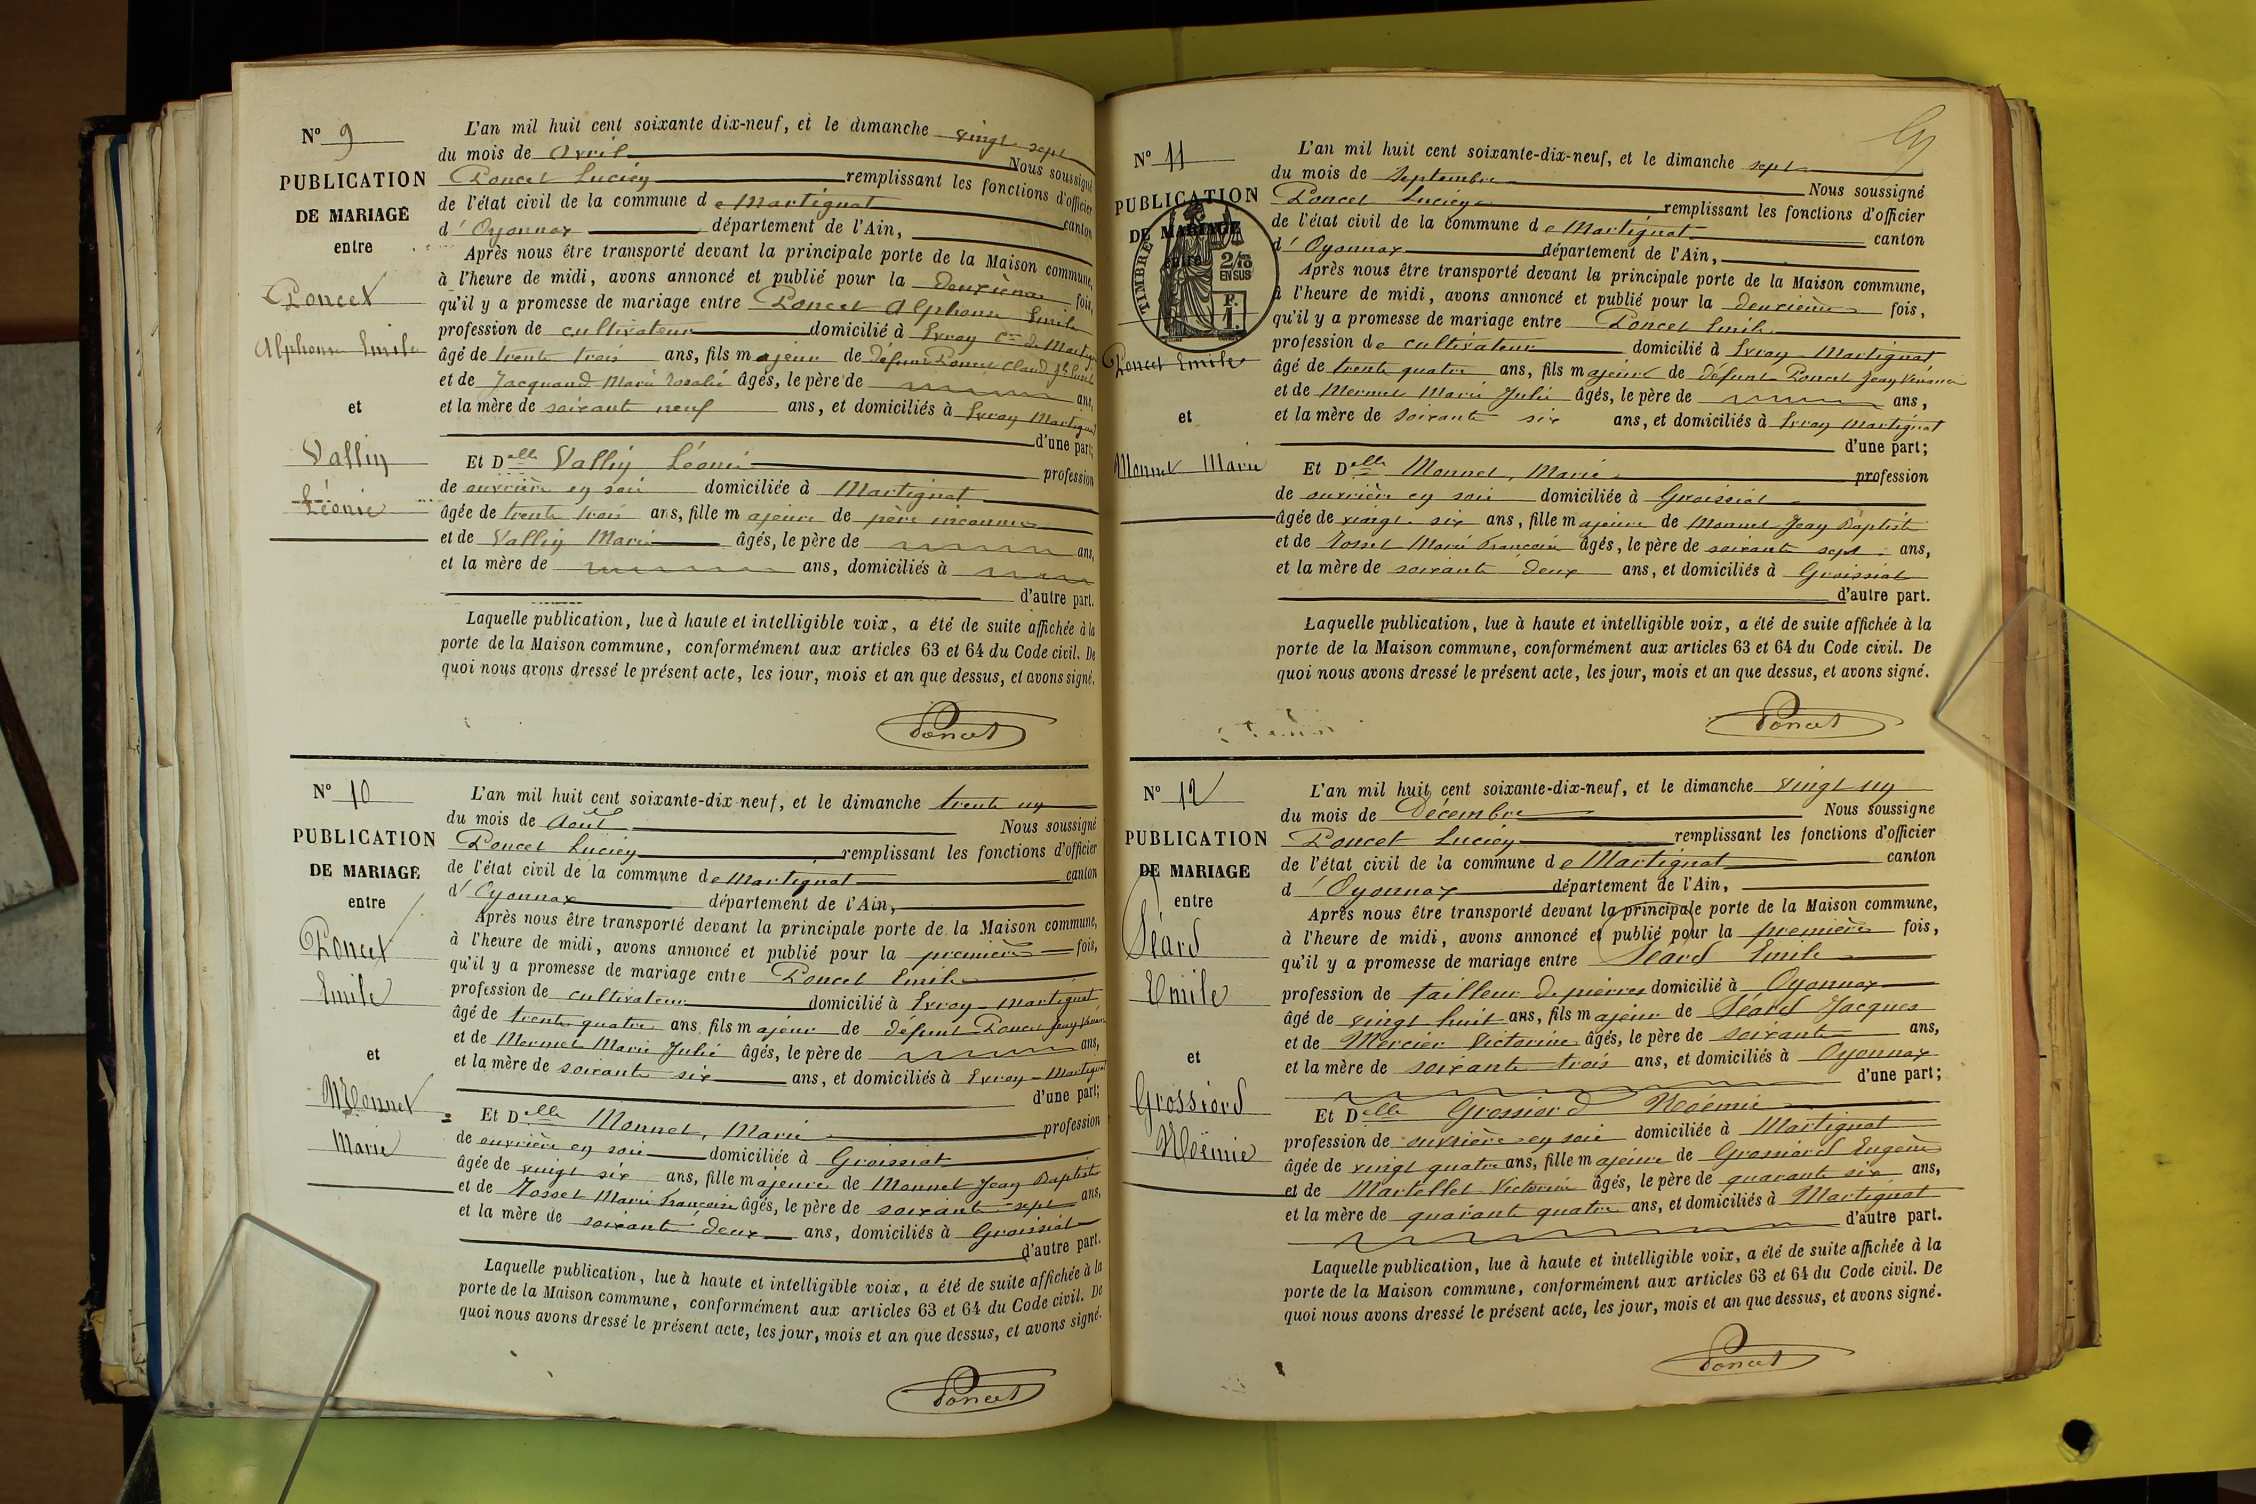 N° 9
PUBLICATION
DE MARIAGE
entre
Poncet
Alphonse Emile
et
Vallin
Léonie
L'an mil huit cent soixante dix-neuf, et le dimanche vingt sept
du mois de Avril Nous soussigné
Poncet Lucien remplissant les fonctions d'officier
de l'état civil de la commune de Martignat canton
d'Oyonnax département de l'Ain,
Après nous être transporté devant la principale porte de la Maison commune,
à l'heure de midi, avons annoncé et publié pour la deuxième fois,
qu'il y a promesse de mariage entre Poncet Alphonse Emile
profession de cultivateur domicilié à Evron Cne de Martignat
âgé de trente trois ans, fils majeur de défunt Poncet Claude
et de Jacquand Marie Rosalie âgés, le père de ans,
et la mère de soixante neuf ans, et domiciliés à Evron Martignat
d'une part;
Et Delle Vallin Léonie profession
de ouvrière en soie domiciliée à Martignat
âgée de trente trois ans, fille majeure de père inconnu
et de Vallin Marie âgés, le père de ans,
et la mère de ans, domiciliés à
d'autre part.
Laquelle publication, lue à haute et intelligible voix, a été de suite affichée à la
porte de la Maison commune, conformément aux articles 63 et 64 du Code civil. De
quoi nous avons dressé le présent acte, les jour, mois et an que dessus, et avons signé.
Poncet
N° 10
PUBLICATION
DE MARIAGE
entre
Poncet
Emile
et
Monnet
Marie
L'an mil huit cent soixante-dix-neuf, et le dimanche trente un
du mois de Août Nous soussigné
Poncet Lucien remplissant les fonctions d'officier
de l'état civil de la commune de Martignat canton
d'Oyonnax département de l'Ain,
Après nous être transporté devant la principale porte de la Maison commune,
à l'heure de midi, avons annoncé et publié pour la première fois,
qu'il y a promesse de mariage entre Poncet Emile
profession de cultivateur domicilié à Evron - Martignat
âgé de trente quatre ans, fils majeur de défunt Poncet Jean Venance
et de Mermet Marie Julie âgés, le père de ans,
et la mère de soixante six ans, et domiciliés à Evron - Martignat
d'une part;
Et Delle Monnet, Marie profession
de ouvrière en soie domiciliée à Groissiat
âgée de vingt six ans, fille majeure de Monnet Jean Baptiste
et de Josset Marie Françoise âgés, le père de soixante sept ans,
et la mère de soixante deux ans, domiciliés à Groissiat
d'autre part.
Laquelle publication, lue à haute et intelligible voix, a été de suite affichée à la
porte de la Maison commune, conformément aux articles 63 et 64 du Code civil. De
quoi nous avons dressé le présent acte, les jour, mois et an que dessus, et avons signé.
Poncet
N° 11
PUBLICATION
DE MARIAGE
entre
TIMBRE
2/10
EN SUS
P.
1.
Poncet Emile
et
Monnet Marie
L'an mil huit cent soixante-dix-neuf, et le dimanche sept
du mois de Septembre Nous soussigné
Poncet Lucien remplissant les fonctions d'officier
de l'état civil de la commune de Martignat canton
d'Oyonnax département de l'Ain,
Après nous être transporté devant la principale porte de la Maison commune,
à l'heure de midi, avons annoncé et publié pour la deuxième fois,
qu'il y a promesse de mariage entre Poncet Emile
profession de cultivateur domicilié à Evron - Martignat
âgé de trente quatre ans, fils majeur de défunt Poncet Jean Venance
et de Mermet Marie Julie âgés, le père de ans,
et la mère de soixante six ans, et domiciliés à Evron Martignat
d'une part;
Et Delle Monnet, Marie profession
de ouvrière en soie domiciliée à Groissiat
âgée de vingt six ans, fille majeure de Monnet Jean Baptiste
et de Josset Marie Françoise âgés, le père de soixante sept ans,
et la mère de soixante deux ans, et domiciliés à Groissiat
d'autre part.
Laquelle publication, lue à haute et intelligible voix, a été de suite affichée à la
porte de la Maison commune, conformément aux articles 63 et 64 du Code civil. De
quoi nous avons dressé le présent acte, les jour, mois et an que dessus, et avons signé.
Poncet
N° 12
PUBLICATION
DE MARIAGE
entre
Séard
Emile
et
Grossiord
Noëmie
L'an mil huit cent soixante-dix-neuf, et le dimanche vingt un
du mois de Décembre Nous soussigné
Poncet Lucien remplissant les fonctions d'officier
de l'état civil de la commune de Martignat canton
d'Oyonnax département de l'Ain,
Après nous être transporté devant la principale porte de la Maison commune,
à l'heure de midi, avons annoncé et publié pour la première fois,
qu'il y a promesse de mariage entre Séard Emile
profession de tailleur de pierres domicilié à Oyonnax
âgé de vingt huit ans, fils majeur de Séard Jacques
et de Mercier Victorine âgés, le père de soixante ans,
et la mère de soixante trois ans, et domiciliés à Oyonnax
d'une part;
Et Delle Grossiord Noémie
profession de ouvrière en soie domiciliée à Martignat
âgée de vingt quatre ans, fille majeure de Grossiord Eugène
et de Martellet Victorine âgés, le père de quarante six ans,
et la mère de quarante quatre ans, et domiciliés à Martignat
d'autre part.
Laquelle publication, lue à haute et intelligible voix, a été de suite affichée à la
porte de la Maison commune, conformément aux articles 63 et 64 du Code civil. De
quoi nous avons dressé le présent acte, les jour, mois et an que dessus, et avons signé.
Poncet